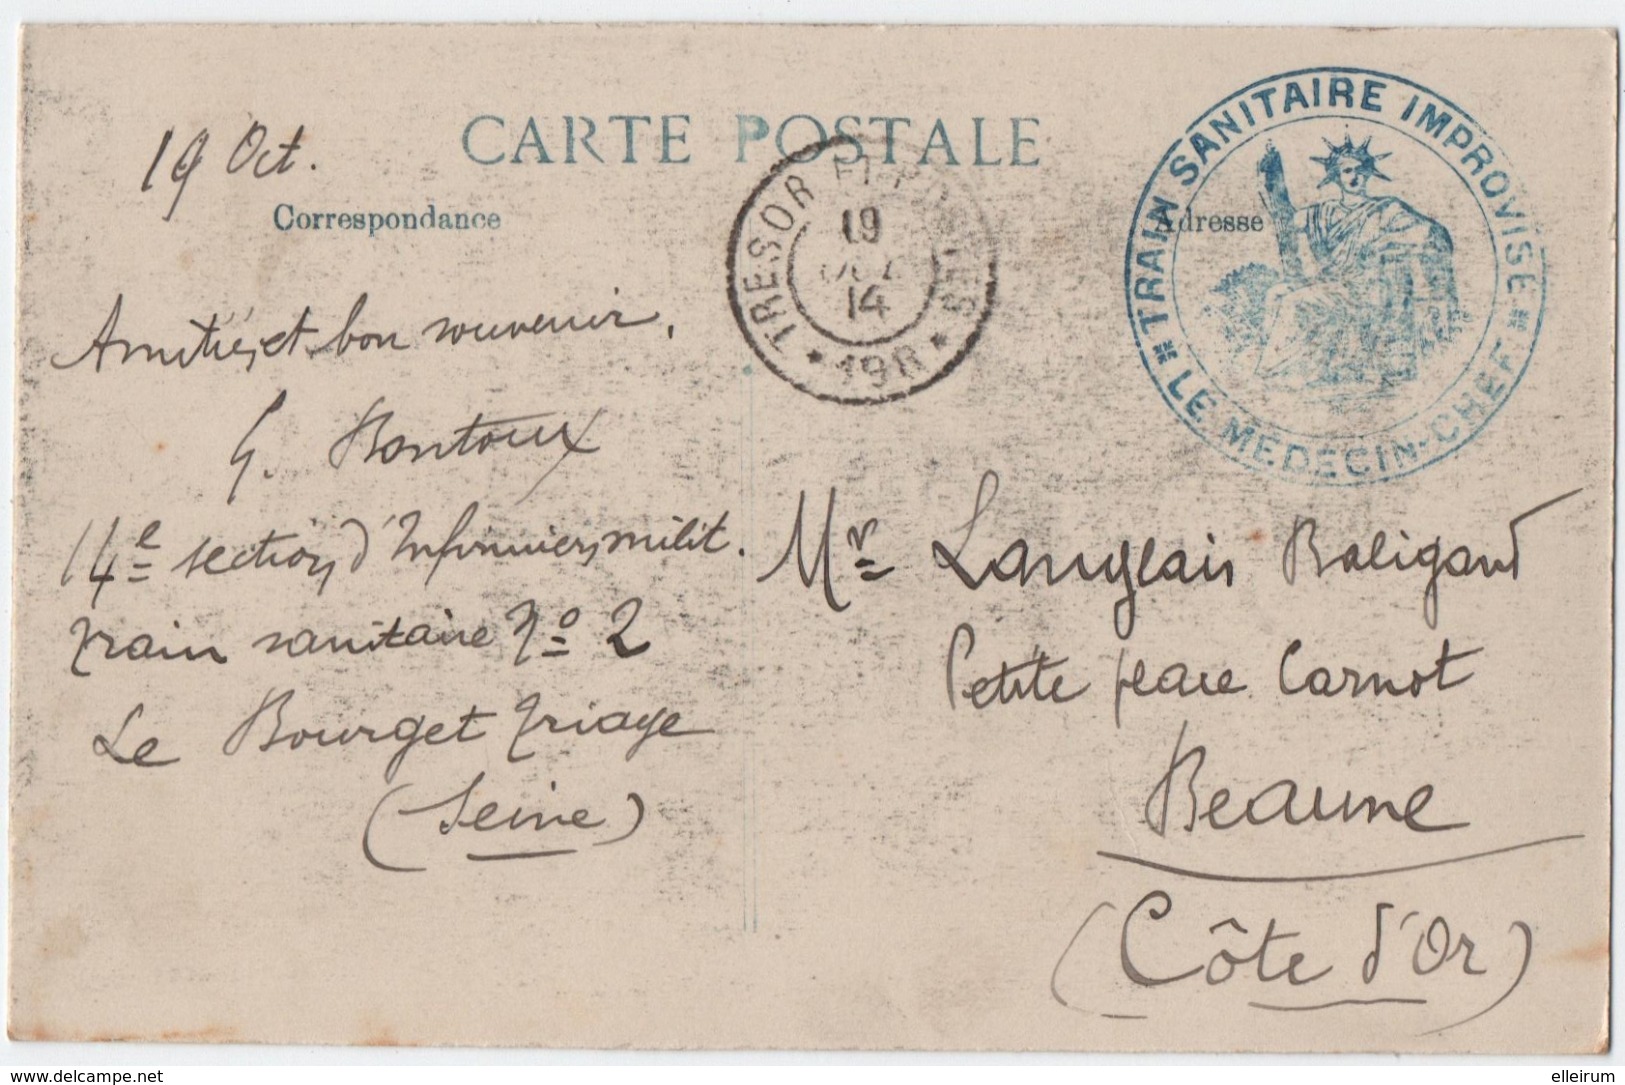 CARTE POSTALE
19 Oct.
Correspondance
Adresse
TRESOR ET POSTES
19
OCT
14
* 198 *
TRAIN SANITAIRE IMPROVISÉ
LE MEDECIN-CHEF
Amitiés et bon souvenir.
G. Bontoux
14e section d'Infirmiers milit.
train sanitaire No 2
Le Bourget triage
(Seine)
Mr Langlais Baligand
Petite place Carnot
Beaune
(Côte d'Or)
www.delcampe.net
elleirum